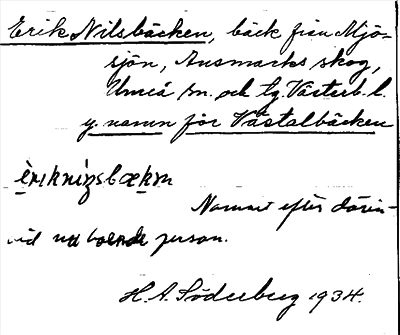 Erik Nilsbäcken, bäck från Mjö-
sjön, Ansmarks skog,
Umeå sn. och tg. Västerb. l.
y. namn för Västalbäcken
èrikniŋsbækɱ
Namnet efter därin-
vid nu boende person.
H. A. Söderberg 1934.